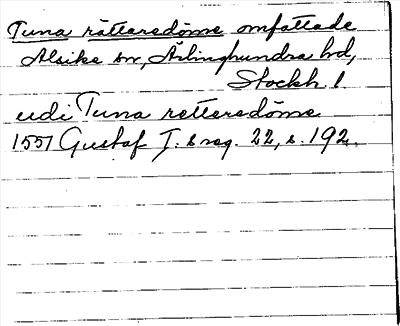 Tuna rättaredöme omfattade
Alsike sn, Ärlinghundra hd,
Stockh. l
udi Tuna retteredöme
1557 Gustaf I. s reg. 22, s. 192.